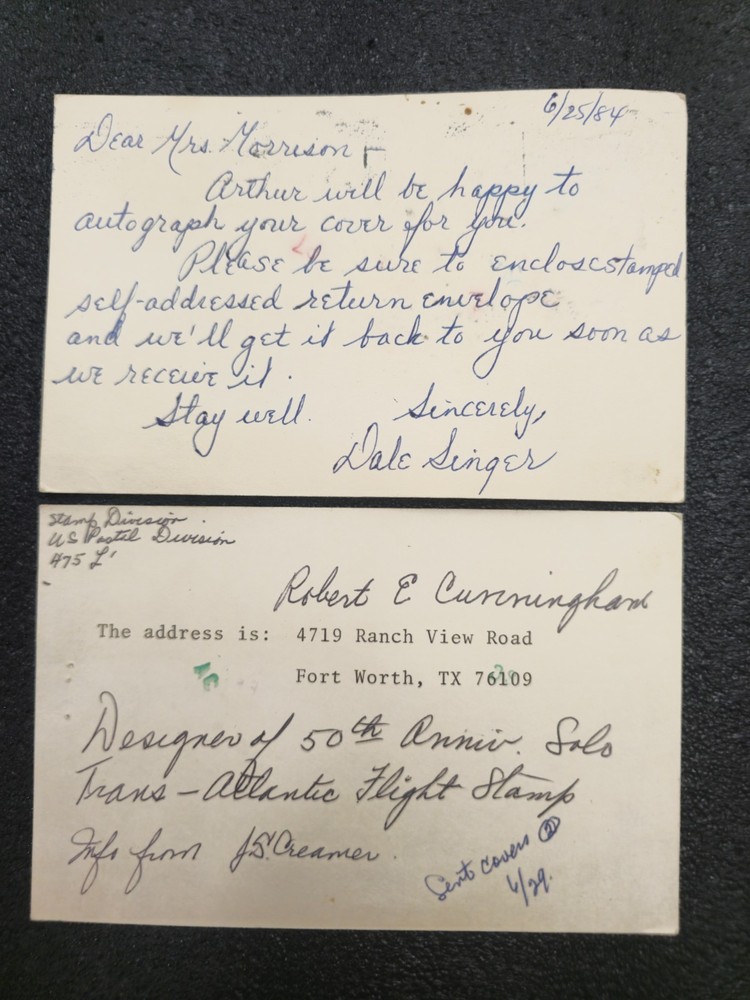 6/25/84
Dear Mrs. Morrison -
Arthur will be happy to
autograph your cover for you.
Please be sure to enclose stamped
self-addressed return envelope
and we'll get it back to you soon as
we receive it.
Stay well. Sincerely,
Dale Singer
Stamp Division.
US Postal Division
475 L'
Robert E Cunningham
The address is: 4719 Ranch View Road
Fort Worth, TX 76109
Designer of 50th Anniv. Solo
Trans-Atlantic Flight Stamp
Info from J.S. Creamer.
Sent covers 2
6/29.